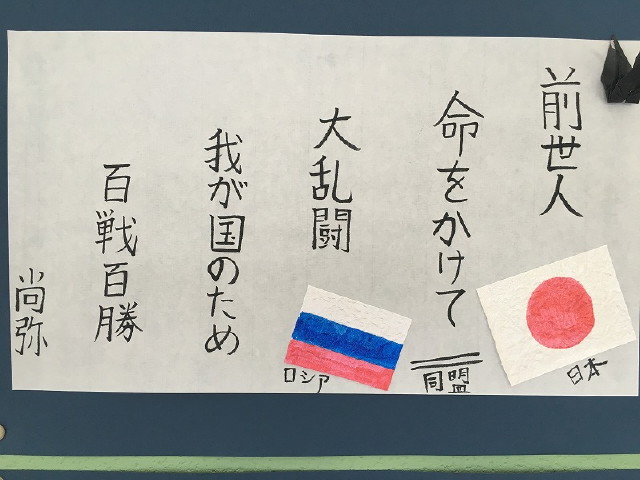 前世人
命をかけて
大乱闘
我が国のため
百戦百勝
尚弥
日本
同盟
ロシア